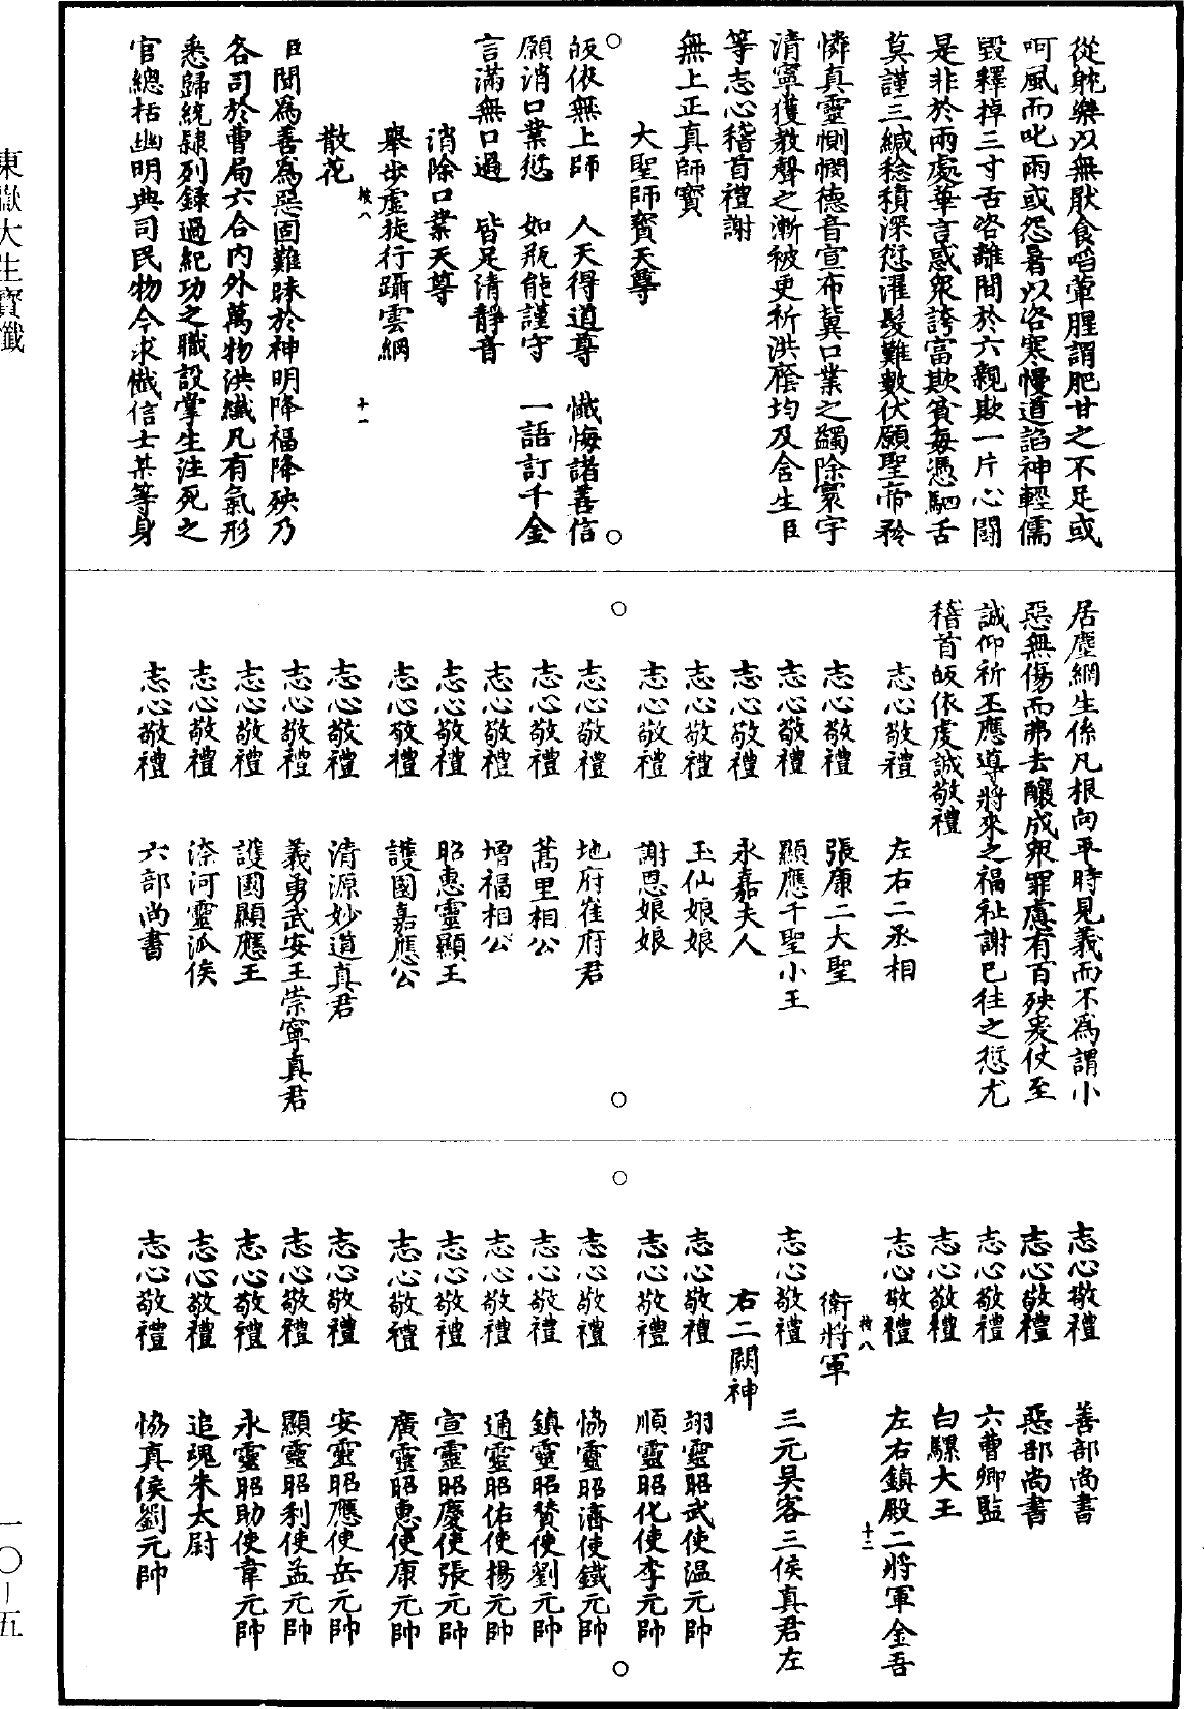 從躭樂以無猒食啗葷腥謂肥甘之不足或
呵風而叱雨或怨暑以咨寒慢道謟神輕儒
毀釋掉三寸舌咨離間於六親欺一片心鬪
是非於兩處華言惑衆誇富欺貧每憑駟舌
莫謹三緘稔積深愆濯髮難數伏願聖帝矜
憐真靈惻憫德音宣布冀口業之蠲除寰宇
清寧獲教聲之漸被更祈洪廕均及含生臣
等志心稽首禮謝
無上正真師寳
大聖師寳天尊
皈依無上師　人天得道尊　懺悔諸善信
願消口業愆　如瓶能謹守　一語訂千金
言滿無口過　皆足清靜音
消除口業天尊
舉步虛旋行躡雲綱
散花
枝八　十一
臣聞為善為惡固難昧於神明降福降殃乃
各司於曹局六合内外萬物洪纖凡有氣形
悉歸統隸列錄過紀功之職設掌生注死之
官總括幽明典司民物今求懺信士某等身
居塵網生係凡根向平時見義而不為謂小
惡無傷而弗去釀成衆罪慮有百殃爰仗至
誠仰祈丕應導將來之福祉謝已往之愆尤
稽首皈依虔誠敬禮
志心敬禮　左右二丞相
志心敬禮　張康二大聖
志心敬禮　顯應千聖小王
志心敬禮　永嘉夫人
志心敬禮　玉仙娘娘
志心敬禮　謝恩娘娘
志心敬禮　地府崔府君
志心敬禮　蒿里相公
志心敬禮　增福相公
志心敬禮　昭惠靈顯王
志心敬禮　護國嘉應公
志心敬禮　清源妙道真君
志心敬禮　義勇武安王崇寧真君
志心敬禮　護國顯應王
志心敬禮　渿河靈派侯
志心敬禮　六部尚書
志心敬禮　善部尚書
志心敬禮　惡部尚書
志心敬禮　六曹卿監
志心敬禮　白騾大王
志心敬禮　左右鎮殿二將軍金吾
枝八　十二
衛將軍
志心敬禮　三元吴客三侯真君左
右二闕神
志心敬禮　翊靈昭武使温元帥
志心敬禮　順靈昭化使李元帥
志心敬禮　協靈昭濟使鐵元帥
志心敬禮　鎮靈昭贊使劉元帥
志心敬禮　通靈昭佑使楊元帥
志心敬禮　宣靈昭慶使張元帥
志心敬禮　廣靈昭惠使康元帥
志心敬禮　安靈昭應使岳元帥
志心敬禮　顯靈昭利使孟元帥
志心敬禮　永靈昭助使韋元帥
志心敬禮　追魂朱太尉
志心敬禮　協真侯劉元帥
東嶽大生寳懺
一〇－五